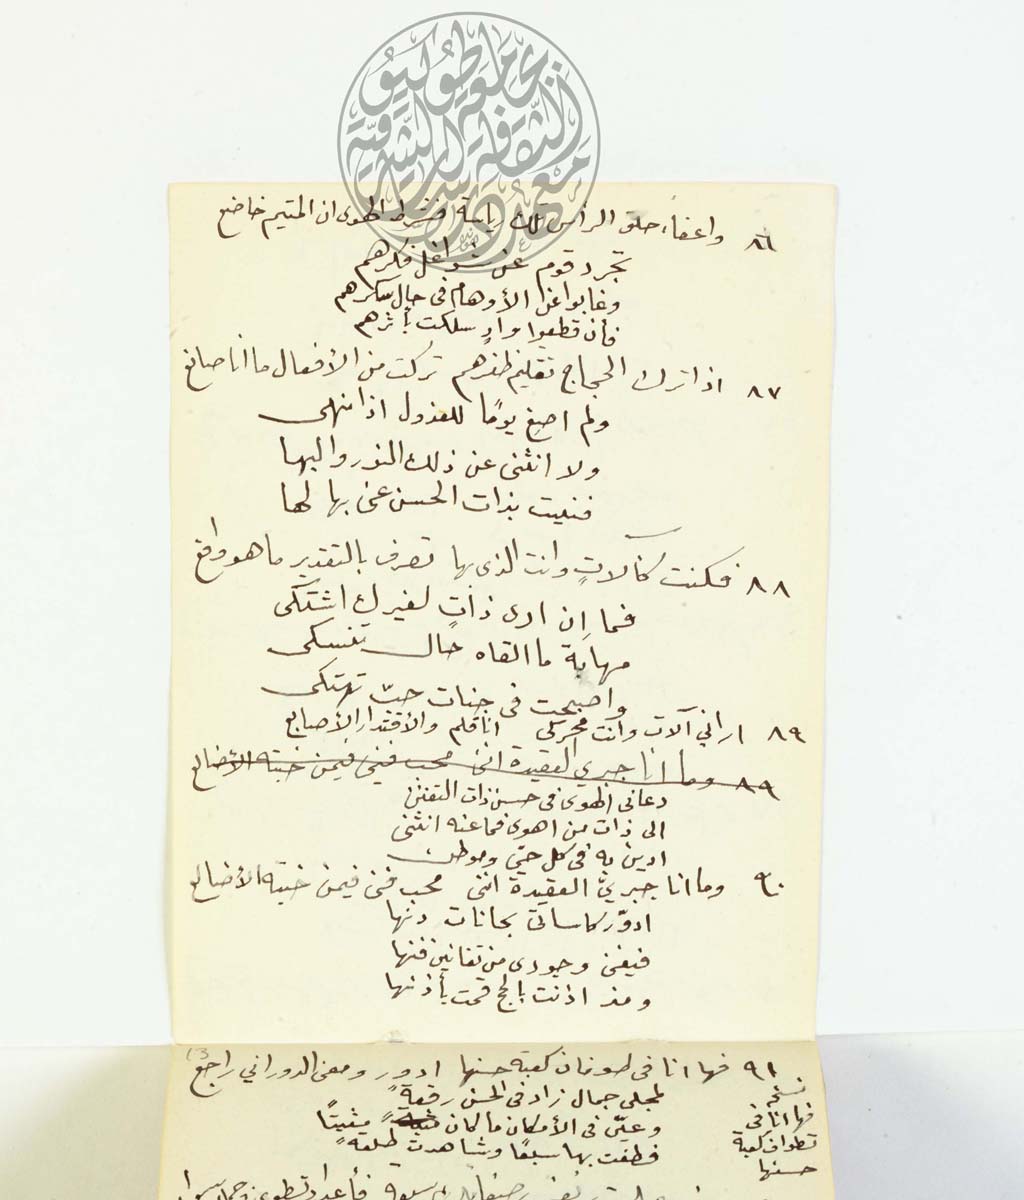 ٨٦ واعفاء حلق الرأس تلك رياسة فشرط الهوى ان المتيم خاضع
تجرد قوم عن شواغل فكرهم
وغابوا عن الأوهام فى حال سكرهم
فأن قطعوا وادٍ سلكت بأثرهم
٨٧ اذا ترك الحجاج تقليم ظفرهم تركت من الأفعال ما انا صانع
ولم اصغ يومًا للعذول اذا نهى
ولا انثنى عن ذلك النور والبها
فنيت بذات الحسن عنى بها لها
٨٨ فكنت كآلات وانت الذى بها تصرف بالتقدير ما هو واقع
فما إن ارى ذاتٍ لغيرك اشتكى
مهابة ما القاه حال تنسكى
واصبحت فى جنات حبّ تهتكى
٨٩ ارانى آلات وانت محركى انا قلم والأقتدار الأصابع
٨٩ وما انا جبري العقيدة اننى محب فنى فيمن خبته الأضالع
دعانى الهوى فى حسن ذات التفنن
الى ذات من اهوى فما عنه انثنى
ادين به فى كل حيّ وموطن
٩٠ وما انا جبريّ العقيدة اننى محب فنى فيمن خبته الأضالع
ادوّر كاساتى بحانات دنها
فيفنى وجودى من تفانين فنها
ومذ اذنت بالحج قمت بأذنها
13
٩١ فها انا فى طوفان كعبة حسنها ادور ومعنى الدوران راجع
لمجلى جمال زاد فى الحسن رفعة
وعيّن فى الأمكان ما كان مثبتًا
فطفت بها سبعًا وشاهدت طلعة
نسخه
فها انا فى
تطواف كعبة
حسنها